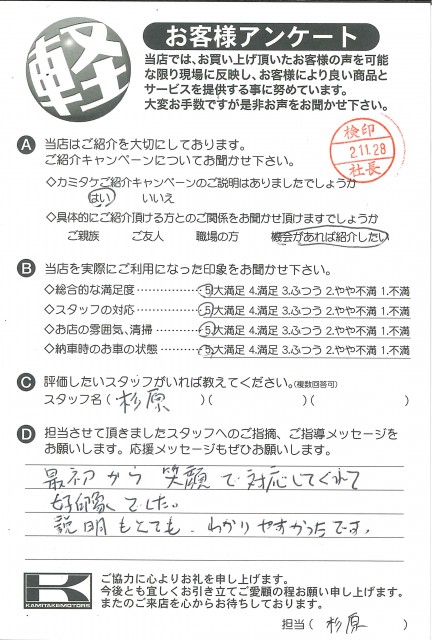 軽
お客様アンケート
当店では、お買い上げ頂いたお客様の声を可能
な限り現場に反映し、お客様により良い商品と
サービスを提供する事に努めています。
大変お手数ですが是非お声をお聞かせ下さい。
検印
2.11.28
社長
A 当店はご紹介を大切にしております。
ご紹介キャンペーンについてお聞かせ下さい。
◇カミタケご紹介キャンペーンのご説明はありましたでしょうか
はい いいえ
◇具体的にご紹介頂ける方とのご関係をお聞かせ頂けますでしょうか
ご親族 ご友人 職場の方 機会があれば紹介したい
B 当店を実際にご利用になった印象をお聞かせ下さい。
◇総合的な満足度…………………5.大満足 4.満足 3.ふつう 2.やや不満 1.不満
◇スタッフの対応…………………5.大満足 4.満足 3.ふつう 2.やや不満 1.不満
◇お店の雰囲気、清掃……………5.大満足 4.満足 3.ふつう 2.やや不満 1.不満
◇納車時のお車の状態……………5.大満足 4.満足 3.ふつう 2.やや不満 1.不満
C 評価したいスタッフがいれば教えてください。(複数回答可)
スタッフ名( 杉原 )( )( )
D 担当させて頂きましたスタッフへのご指摘、ご指導メッセージを
お願いします。応援メッセージもぜひお願いします。
最初から笑顔で対応してくれて
好印象でした。
説明もとても、わかりやすかったです。
K
KAMITAKEMOTORS
ご協力に心よりお礼を申し上げます。
今後とも宜しくお引き立てご愛顧の程お願い申し上げます。
またのご来店を心からお待ちしております。
担当( 杉原 )